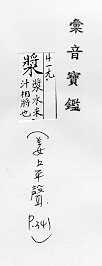 彙音寶鑑
廿一元
漿
漿水米
汁相將也
(姜上平聲)
P.341